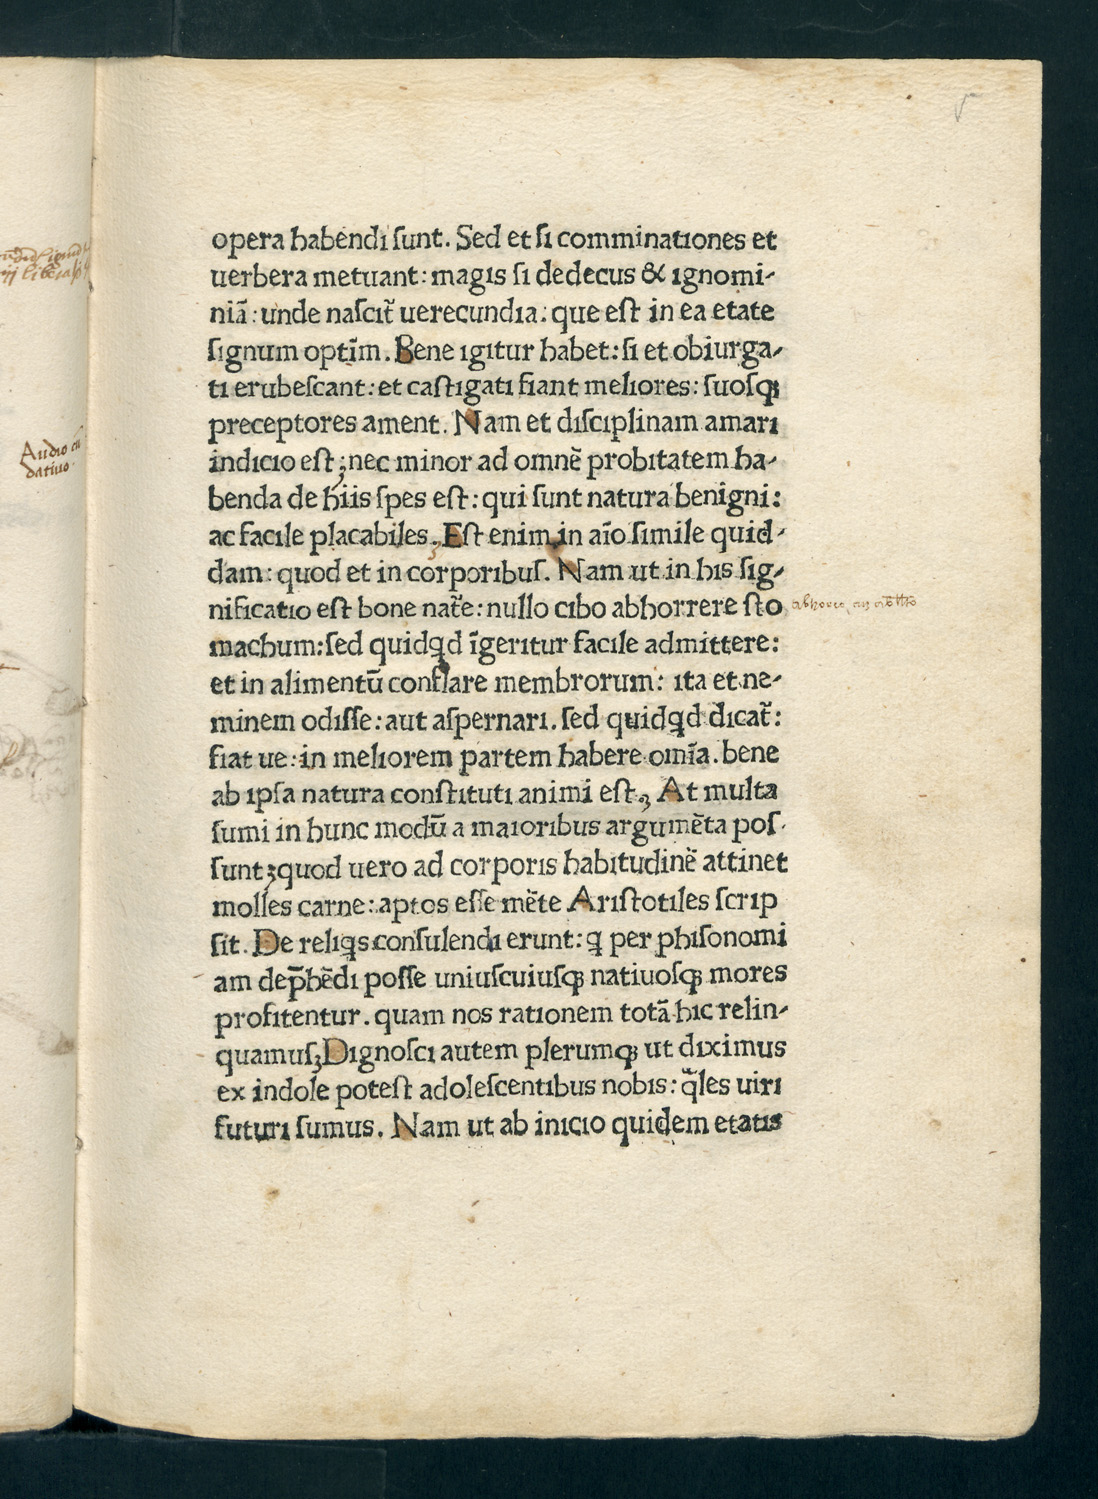 opera habendi ſunt. Sed et ſi comminationes et
uerbera metuant: magis ſi dedecus & ignomi-
niā: unde naſcit̄ uerecundia: que eſt in ea etate
ſignum optīm. Bene igitur habet: ſi et obiurga-
ti erubeſcant: et caſtigati fiant meliores: ſuoſqꝫ
preceptores ament. Nam et diſciplinam amari
indicio eſt; nec minor ad omnē probitatem ha-
benda de hiis ſpes eſt: qui ſunt natura benigni:
ac facile placabiles. Eſt enim in aīo ſimile quid-
dam: quod et in corporibuſ. Nam ut in his ſig-
nificatio eſt bone nat̄e: nullo cibo abhorrere ſto
machum: ſed quidqd īgeritur facile admittere:
et in alimentū conflare membrorum: ita et ne-
minem odiſſe: aut aſpernari. ſed quidqd dicat̄:
fiat ue: in meliorem partem habere omīa. bene
ab ipſa natura conſtituti animi eſt; At multa
ſumi in hunc modū a maioribus argumēta poſ-
ſunt; quod uero ad corporis habitudinē attinet
molles carne: aptos eſſe mēte Ariſtotiles ſcrip
ſit. De reliqs conſulendi erunt: q per phiſonomi
am dep̄hēdi poſſe uniuſcuiuſqꝫ natiuoſqꝫ mores
profitentur. quam nos rationem totā hic relin-
quamuſ; Dignoſci autem plerumqꝫ ut diximus
ex indole poteſt adoleſcentibus nobis: q̄les uiri
futuri ſumus. Nam ut ab inicio quidem etatis
Audio cū
datiuo